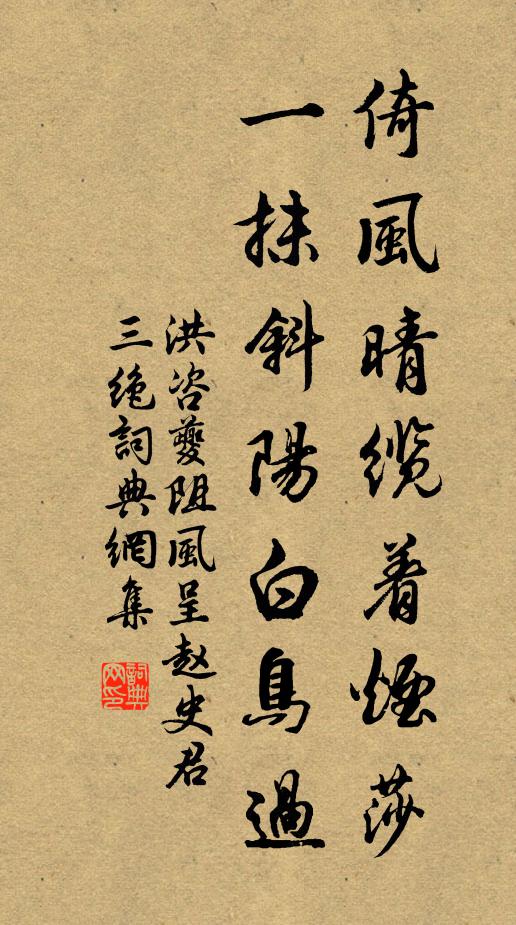 倚風晴纜着煙莎
一抹斜陽白鳥過
洪咨夔阻風呈赵史君
三绝詞典網集
詞典網印